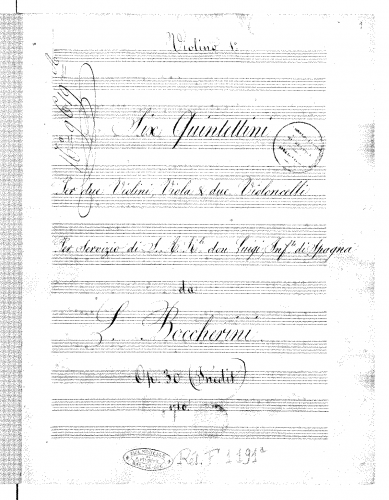 Violino 1º
1
Six Quintettini
Per due Violini, Viola & due Violoncelli
Per Servizio di S. A. Rle don Luigi Infte di Spagna
da
L. Boccherini.
Op. 30 (Inédit)
Rés. F 1191a